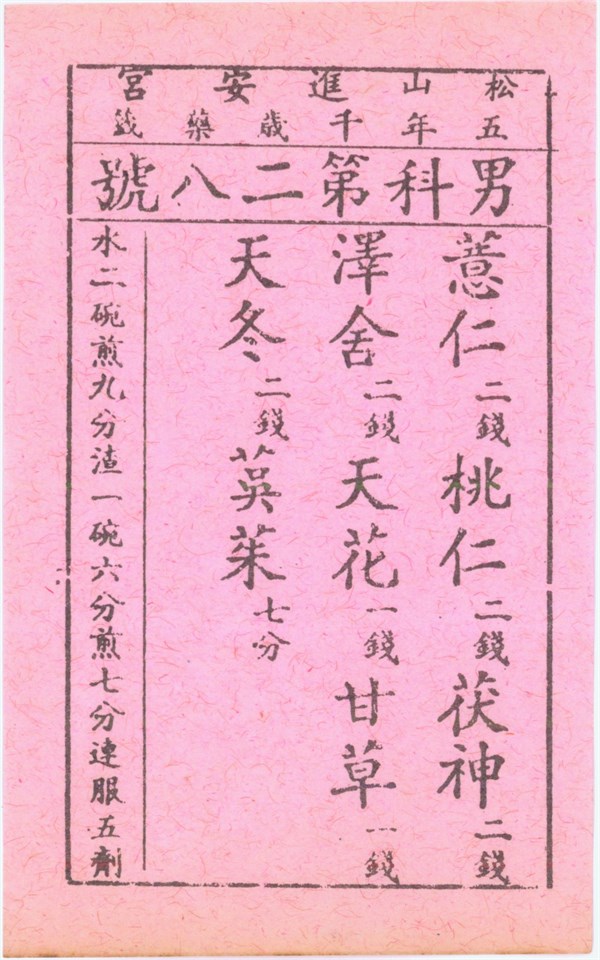 松山進安宮
五年千歲藥籤
男科第二八號
薏仁二錢桃仁二錢茯神二錢
澤舍二錢天花一錢甘草一錢
天冬二錢茣茱七分
水二碗煎九分渣一碗六分煎七分連服五劑